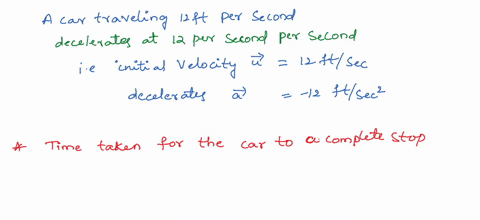 A car traveling 12ft per second
decelerates at 12 per second per second
i.e initial velocity u⃗ = 12 ft/sec
decelerates a⃗ = -12 ft/sec²
* Time taken for the car to a complete stop